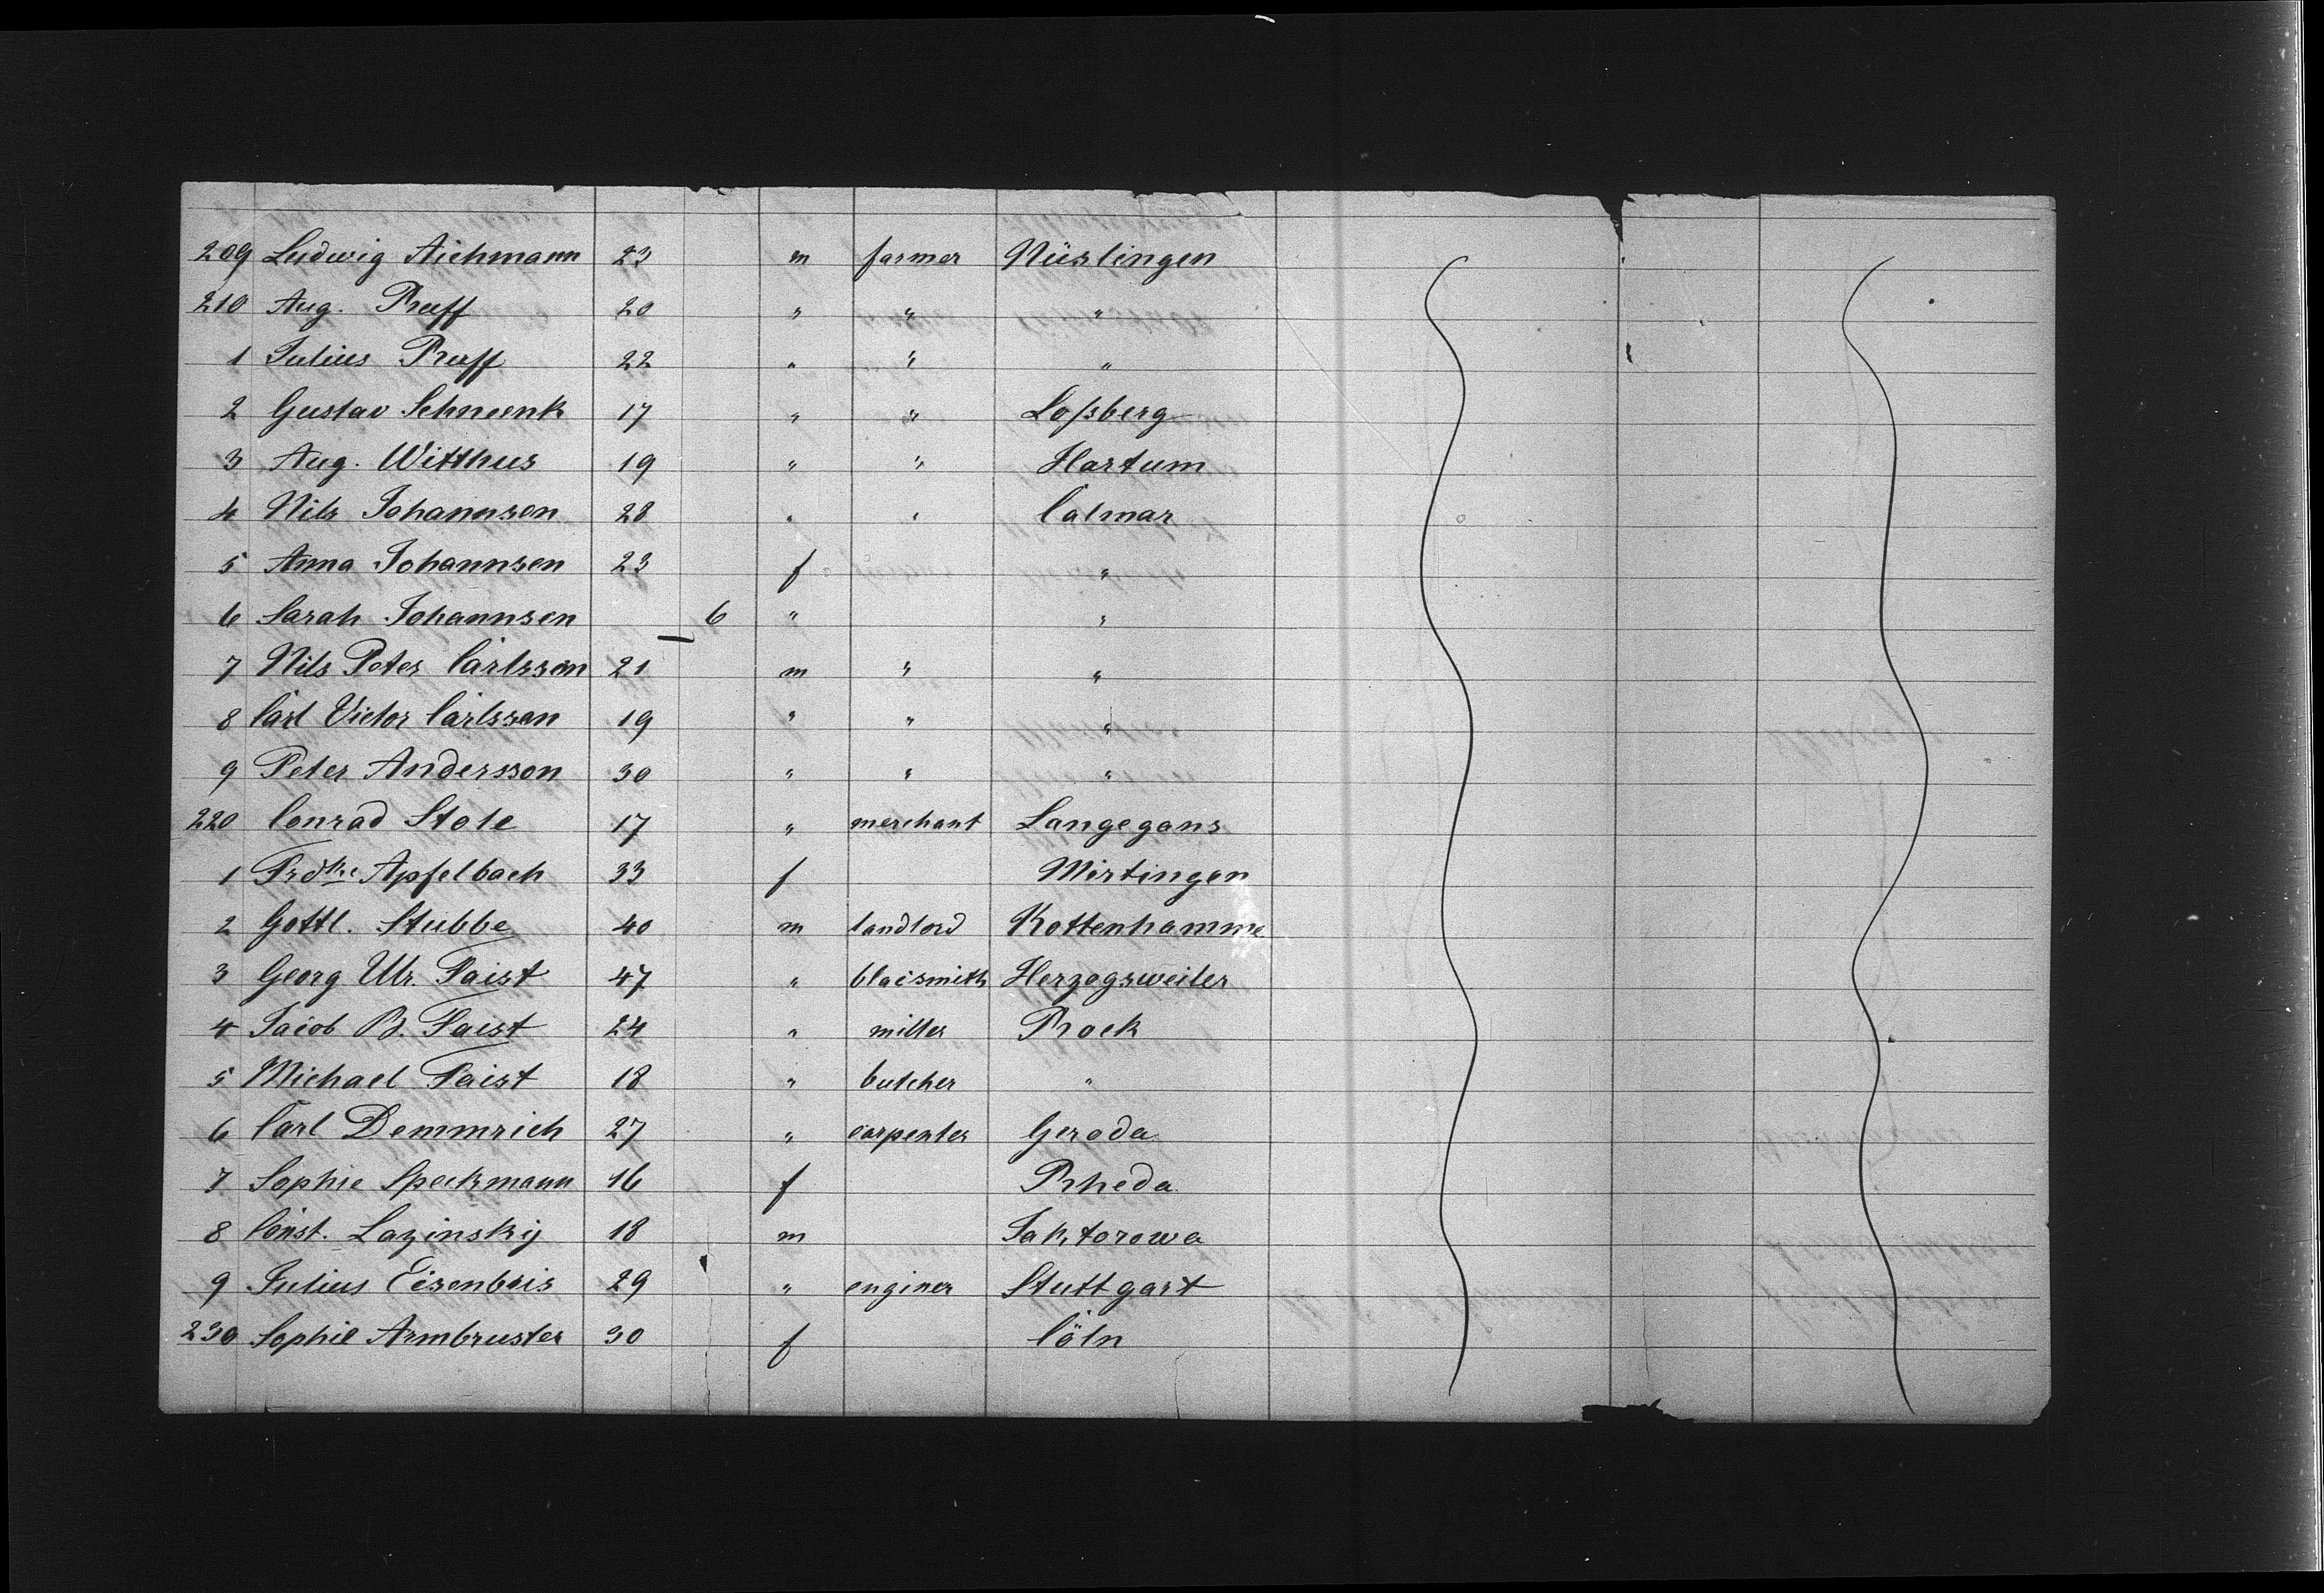 209 Ludwig Aichmann 23 m farmer Nürlingen
210 Aug. Ruff 20 " " "
1 Julius Ruff 22 " " "
2 Gustav Schneenk 17 " " Loßberg
3 Aug. Witthus 19 " " Hartum
4 Nils Johannsen 28 " " Calmar
5 Anna Johannsen 23 f "
6 Sarah Johannsen 6 " "
7 Nils Peter Carlsson 21 m " "
8 Carl Victor Carlsson 19 " " "
9 Peter Andersson 30 " " "
220 Conrad Stole 17 " merchant Langegans
1 Frdke Apfelbach 33 f Mirtingen
2 Gottl. Stubbe 40 m landlord Kottenhamme
3 Georg Ulr. Faist 47 " blacsmith Herzogsweiler
4 Jacob B. Faist 24 " miller Rock
5 Michael Faist 18 " butcher "
6 Carl Demmrich 27 " carpenter Geroda
7 Sophie Speckmann 16 f Rheda
8 Const. Lazinskij 18 m Jaktorowa
9 Julius Eisenbeis 29 " enginer Stuttgart
230 Sophie Armbruster 30 f Cöln